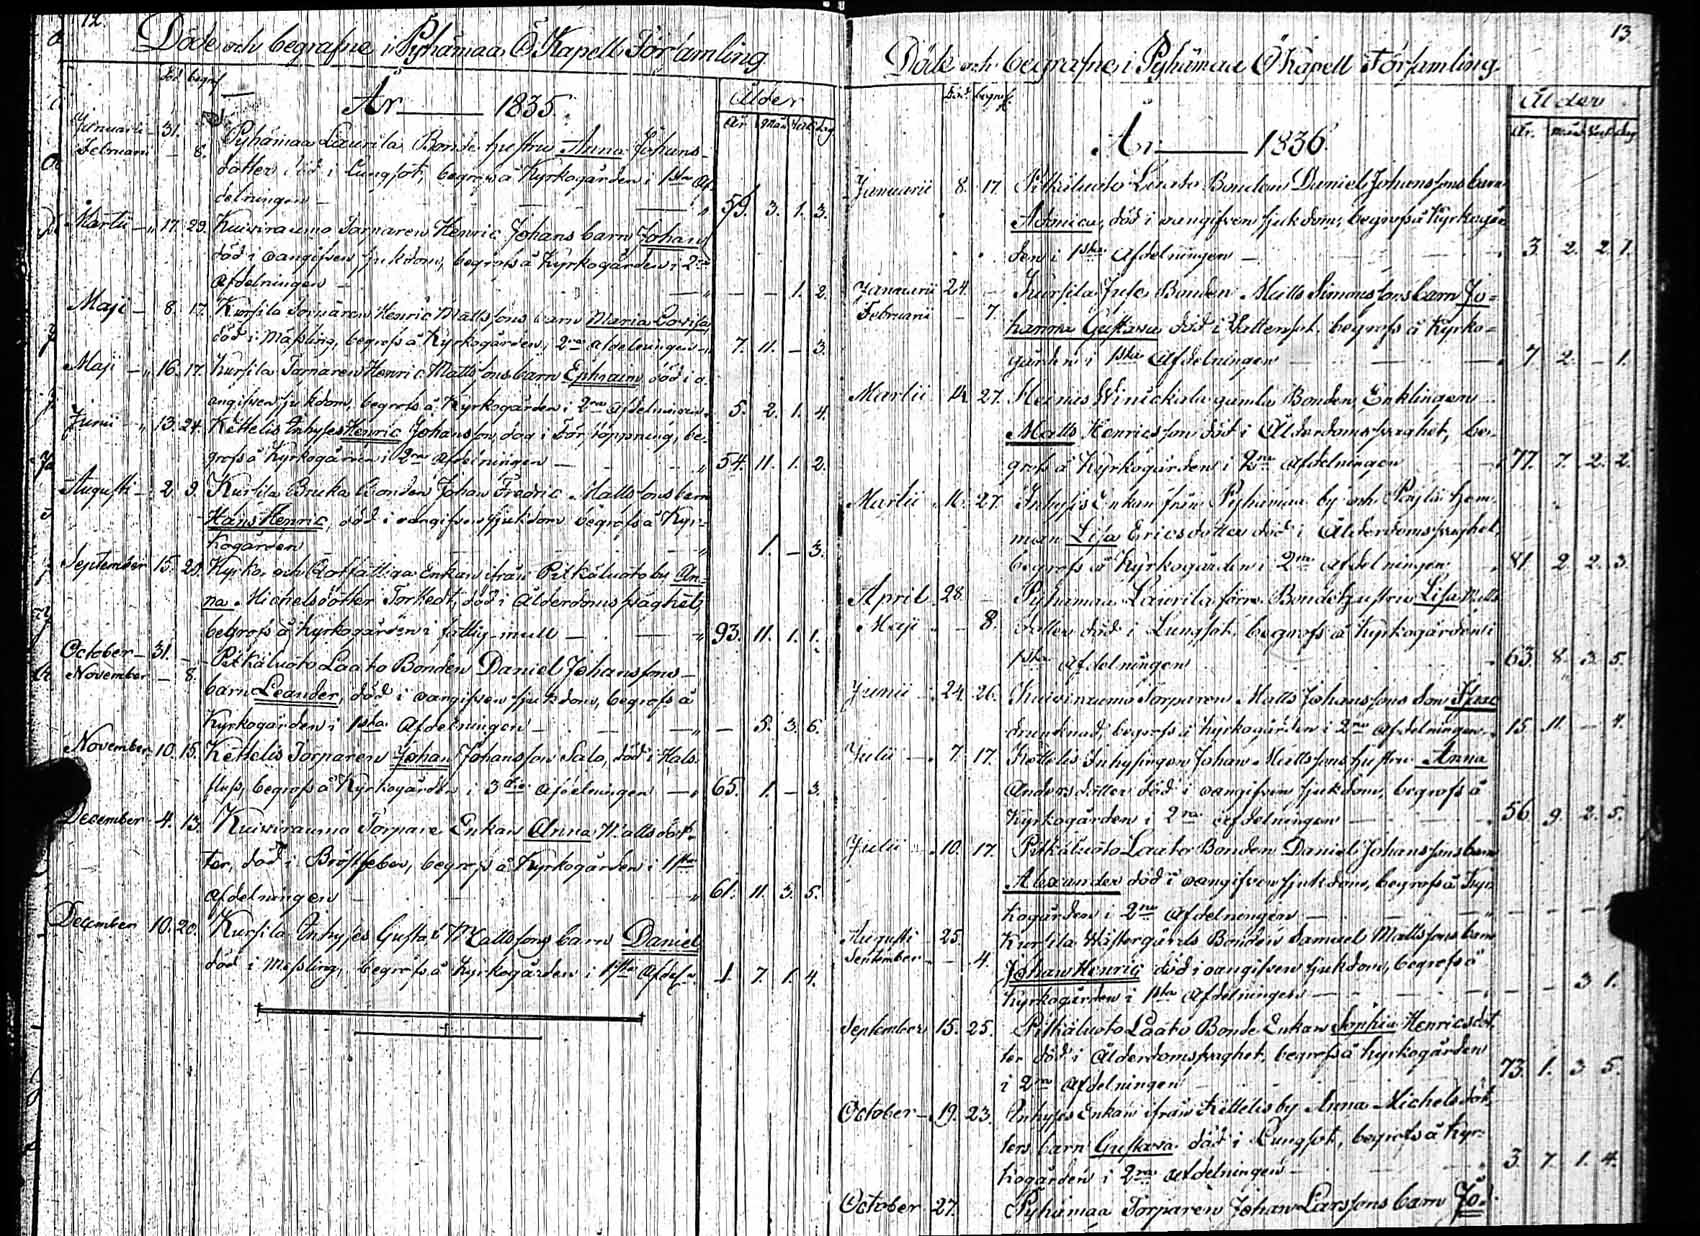 12.
Döde och begrafne i Pyhämaa Ö Kapells Församling
död begrof
År 1835.
Ålder
år. mån. veck. dag
Januarii 31.
Februarii 8.
Pyhämaa Laurila Bonde hustru Anna Johans-
dotter död i Lungsot, begrofs å Kyrkogården i 1sta Af
delningen 59. 3. 1. 3.
Martii 17. 29. Kuivirauma Torparen Henric Johans barn Johan
död i oangifven sjukdom, begrofs å Kyrkogården i 2ra
Afdelningen 1. 2.
Maji 8. 17. Kursila Torparen Henric Mattssons barn Maria Lovisa
död i Mässling, begrofs å Kyrkogården i 2ra afdelningen 7. 11. - 3.
Maji 16. 17. Kursila Torparen Henric Mattssons barn Ephraim, död i o-
angifven sjukdom, begrofs å Kyrkogården i 2ra Afdelningen 5. 2. 1. 4.
Junii 13. 24. Kettelis Inhyses Henric Johansson, dog i Förstoppning, be-
grofs å Kyrkogården i 2ra Afdelningen 54. 11. 1. 2.
Augusti 2. 9. Kursila Bruka Bonden Johan Fredric Mattssons barn
Hans Henric, död i oangifven sjukdom begrofs å Kyr-
kogården 1. - 3.
September 15. 20. Kyrko och Rotfattiga Enkan ifrån Pitkäluoto by An-
na Michelsdotter Torkest, död i Ålderdoms svaghet,
begrofs å Kyrkogården i fattig mull 93. 11. 1. 1.
October 31.
November 8.
Pitkäluoto Laato Bonden Daniel Johanssons
barn Leander, död i oangifven sjukdom, begrofs å
Kyrkogården i 1sta Afdelningen - 5. 3. 6.
November 10. 15. Kettelis Torparen Johan Johansson Salo, död i Hals-
fluss, begrofs å Kyrkogården i 3die afdelningen 65. 1. - 3.
December 4. 13. Kuivirauma Torpare Enkan Anna Mattsdot-
ter, död i Bröstfeber, begrofs å Kyrkogården i 1sta
Afdelningen 61. 11. 3. 5.
December 10. 20. Kursila Inhyses Gustaf Mattssons barn Daniel
död i Mässling, begrofs å Kyrkogården i 1sta Afdel. 1. 7. 1. 4.
13.
Döde och begrafne i Pyhämaa Ö Kapell Församling.
död. begrof.
År 1836
Ålder
år. mån. veck. dag
Januarii 8. 17. Pitkäluoto Laato Bonden Daniel Johanssons barn
Adamica, död i oangifven sjukdom, begrofs å Kyrkogår-
den i 1sta Afdelningen 3. 2. 2. 1.
Januarii 24.
Februarii 7.
Kursila Juse Bonden Matts Simonssons barn Jo-
hanna Gustava död i Vattensot, begrofs å Kyrko-
gården i 1sta Afdelningen 7. 2. - 1.
Martii 14. 27. Heinis Winickala gamla Bonden, Enklingen
Matts Henricsson död i Ålderdomssvaghet, be-
grofs å Kyrkogården i 2ra Afdelningen 77. 7. 2. 2.
Martii 16. 27. Inhyses Enkan från Pyhämaa by och hem-
man Lisa Ericsdotter död i Ålderdomssvaghet,
begrofs å Kyrkogården i 2ra Afdelningen 81. 2. 2. 3.
April 28.
Maji 8.
Pyhämaa Laurila förre Bonde hustru Lisa Matts
dotter död i Lungsot, begrofs å Kyrkogården i
1sta Afdelningen 63. 8. 3. 5.
Junii 24. 26. Kuivirauma Torparen Matts Johanssons Son Isaac
drunknad, begrofs å Kyrkogården i 2ra Afdelningen 15. 11. - 4.
Julii 7. 17. Kettelis Inhysingen Johan Mattssons hustru Anna
Andersdotter död i oangifven sjukdom, begrofs å
Kyrkogården i 2ra Afdelningen 56 9. 2. 5.
Julii 10. 17. Pitkäluoto Laato Bonden Daniel Johanssons barn
Alexander död i oangifven sjukdom, begrofs å Kyr-
kogården i 2ra Afdelningen
Augusti 25.
September 4.
Kursila Wästergårds Bonden Samuel Mattssons barn
Johan Henric död i oangifven sjukdom, begrofs å
Kyrkogården i 1sta Afdelningen - - 3 1.
September 15. 25. Pitkäluoto Laato Bonde Enkan Sophia Henricsdot-
ter död i Ålderdomssvaghet, begrofs å Kyrkogården
i 2ra Afdelningen 73. 1. 3. 5.
October 19. 23. Inhyses Enkan ifrån Kettelis by Anna Michelsdot-
ters barn Gustava död i Lungsot, begrofs å Kyr-
kogården i 2ra Afdelningen 3. 7. 1. 4.
October 27. Pyhämaa Torparen Johan Larssons barn Jo-